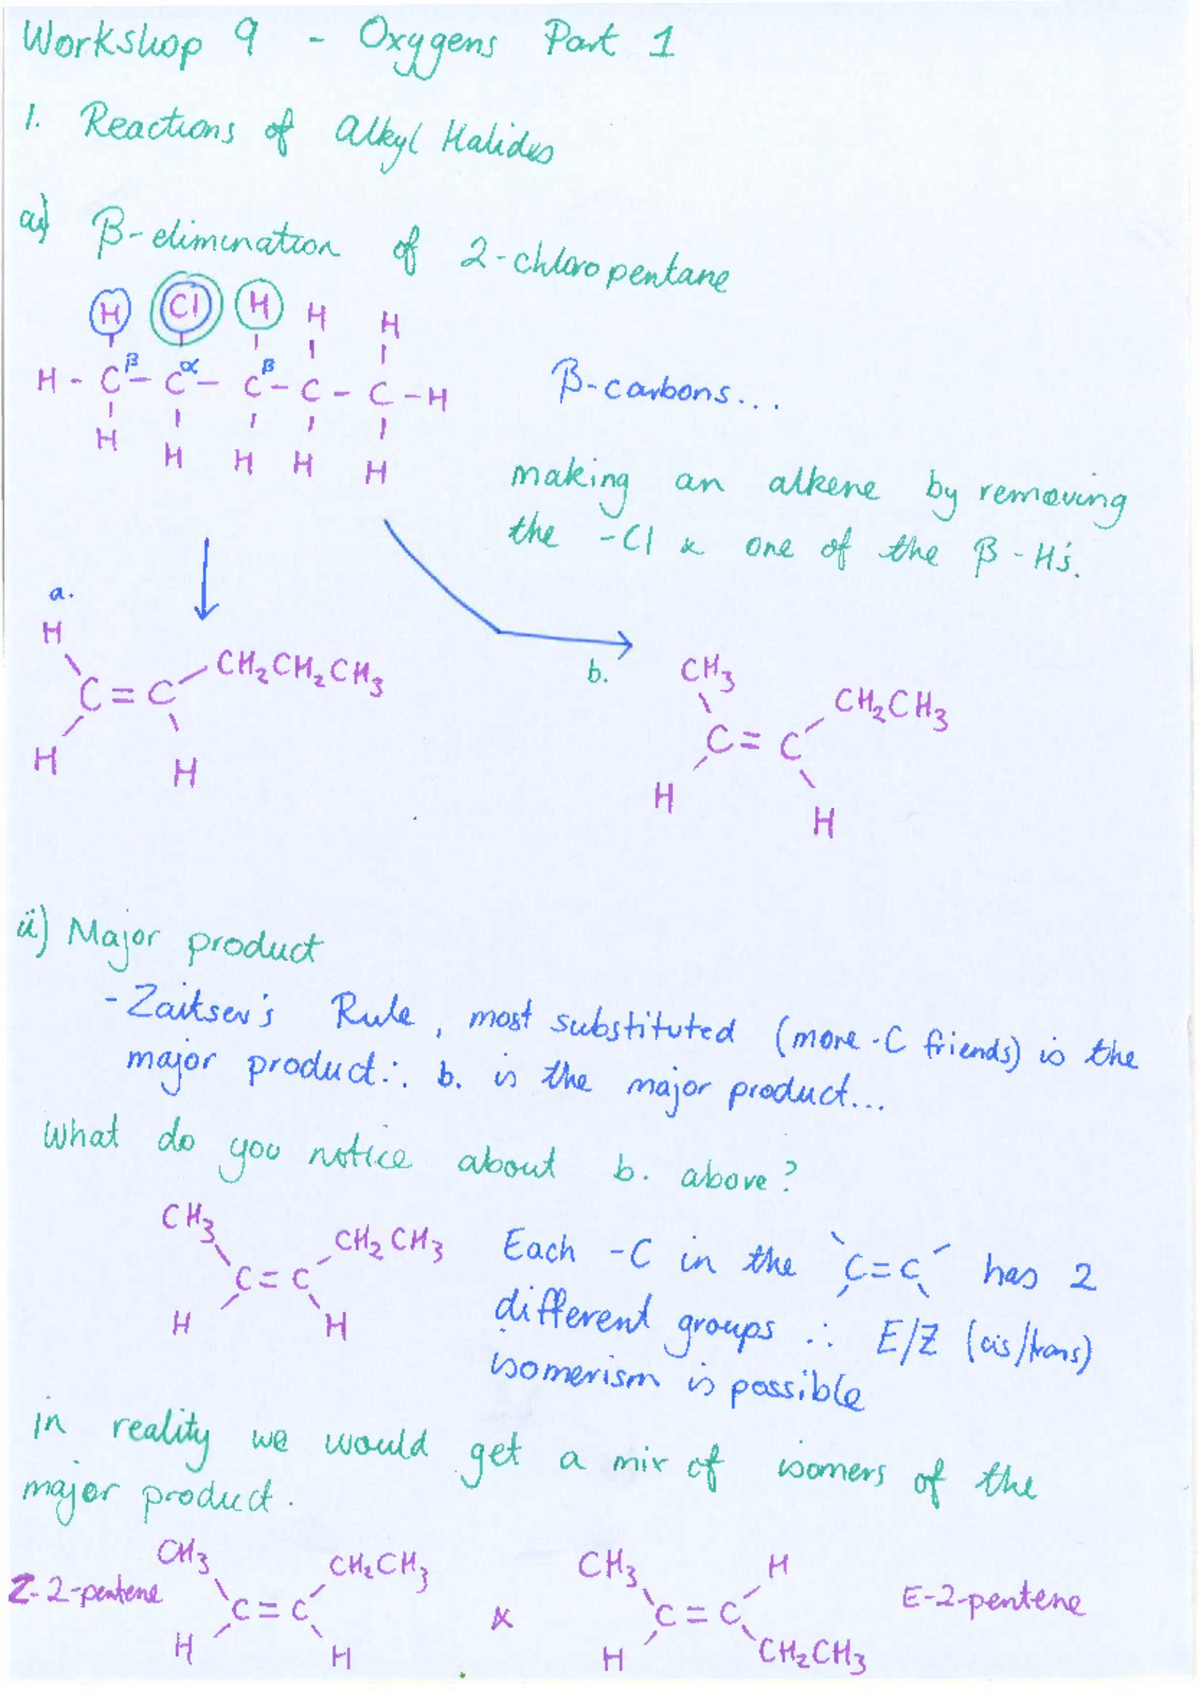 Workshop 9 - Oxygens Part 1
1. Reactions of Alkyl Halides
ai) β-elimination of 2-chloropentane
H Cl H H H
H - Cβ - Cα - Cβ - C - C - H
H H H H H
β-carbons...
making an alkene by removing
the -Cl & one of the β-H's.
a.
H
C = C CH₂CH₂CH₃
H H
b.
CH₃ CH₂CH₃
C = C
H H
ii) Major product
- Zaitsev's Rule, most substituted (more -C friends) is the
major product ∴ b. is the major product...
What do you notice about b. above?
CH₃ CH₂CH₃
C = C
H H
Each -C in the C=C has 2
different groups ∴ E/Z (cis/trans)
isomerism is possible
in reality we would get a mix of isomers of the
major product.
CH₃ CH₂CH₃
Z-2-pentene C = C
H H
&
CH₃ H
C = C E-2-pentene
H CH₂CH₃